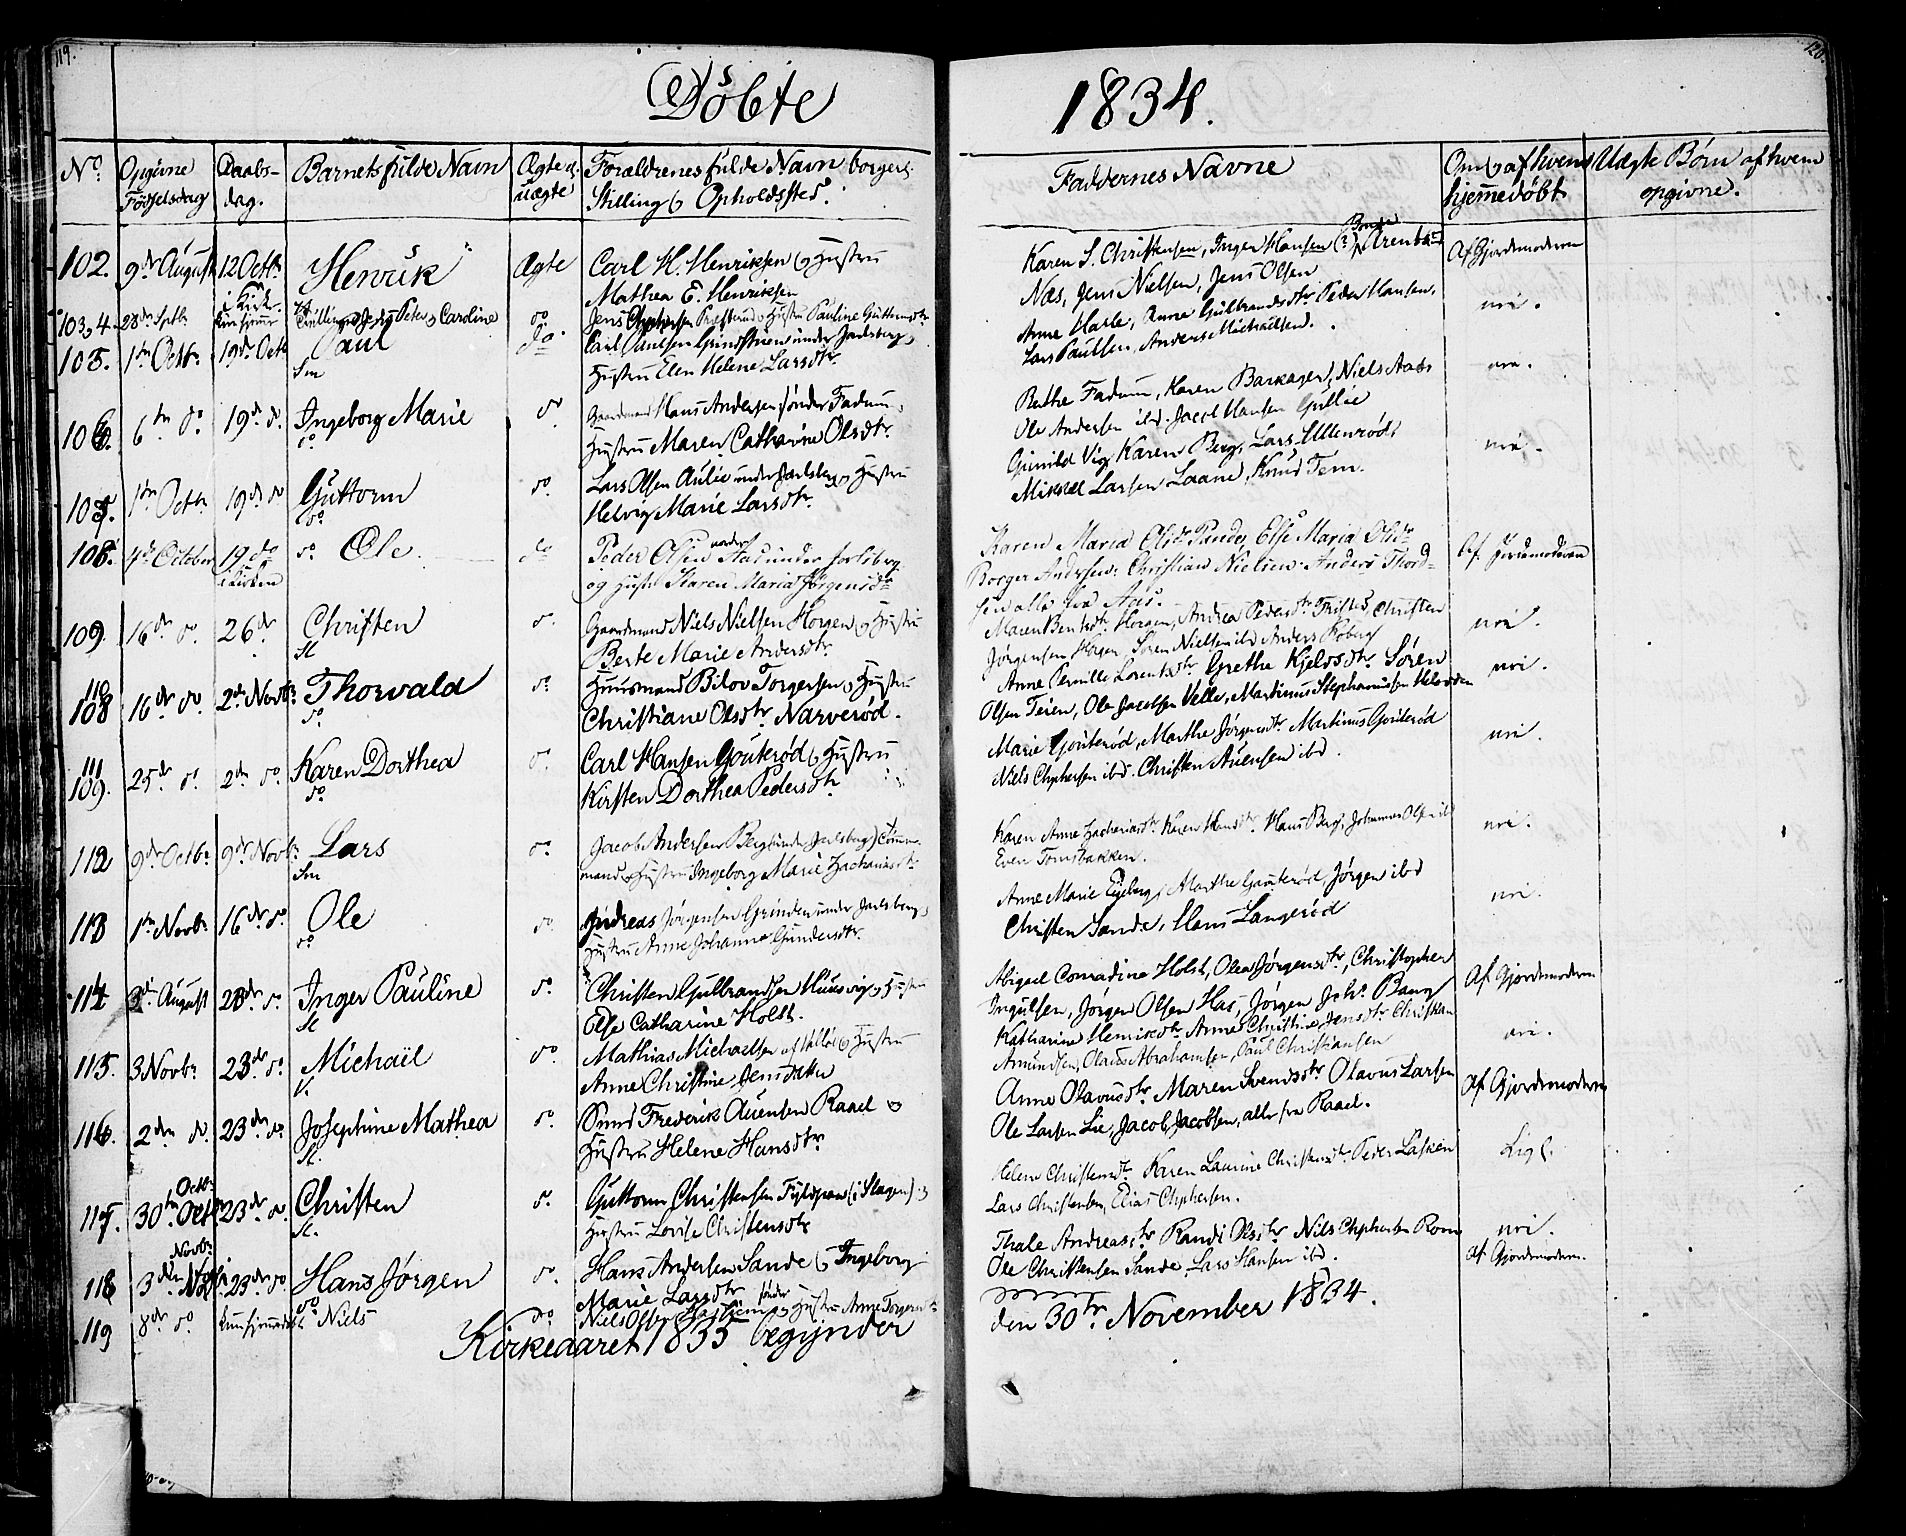 119.
120.
Døbte
1834.
No.
Opgivne Fødselsdag
Daabs-dag.
Barnets fulde Navn
Ægte el. uægte
Forældrenes fulde Navn borgerl. Stilling og Opholdssted.
Faddernes Navne
Om og af hvem hjemmedøbt
Uægte Børn af hvem opgivne.
102. 9de August 12 Octbr. Henrik Ægte Carl H. Henriksen og Hustru
i Kirk. Mathea E. Henriksen
Karen S. Christensen, Inger Hansen
Næs, Jens Nielsen, Jens Olsen
Af Gjordemoderen
103,4. 28de Septbr. Tvillinger Jens Peter og Caroline do Jens Hustru Pauline Guttormsdtr.
105. 1ste Octbr. 19de Octb Paul do Carl Paulsen under Jarlsberg og
Sm Hustru Elen Helene Larsdtr.
Anne Harle, Anne Gulbrandsdtr. Peder Hansen,
Lars Paulsen, Anders Michailsen.
nei.
106. 6te do. 19de do. Ingeborg Marie do Gaardmand Hans Andersen søndre Fadum,
do Hustru Maren Catharine Olsdtr.
Berthe Fadum, Karen Barkager, Niels Aas
Ole Andersen ibd. Jacob Hansen Gullie
nei.
107. 1ste Octbr. 19de do Guttorm do. Lars Olsen Aulie under Jarlsberg og Hustru
do. Helvig Marie Larsdtr.
Gunild Vig, Karen Berg, Lars Ullenrød,
Mikkel Larsen Laane, Knud Tem.
nei.
108. 4de October 19 do do. Ole do Peder Olsen nordre Aas under Jarlsberg
i Kirken og Hustr. Karen Maria Jørgensdtr
Karen Maria Olsdr. Elsе Maria Olsdr
Borger Andersen, Christian Nielsen, Anders Thord-
sen alle fra Aas.
Af Jordemoderen
109. 16de do. 26de Christen do. Gaardmand Niels Nielsen Horgen og Hustru
Sl Berte Marie Andersdtr.
Maren Bentsdtr Horgen, Andrea Pedersdtr. Christen
Jørgensen Horgen, Søren Nielsen ibd. Anders Roberg
nei.
110 108 16de do. 2de Novbr. Thorvald do. Huusmand Bilov Torgersen og Hustru
do. Christiane Olsdtr. Narverød.
Anne Pernille Lorentsdtr. Grethe Kjeldsdtr. Søren
Olsen Teien, Ole Jacobsen Velle, Martinus Stephansen
nei.
111 109. 25de do 2de do. Karen Dorthea do. Carl Hansen Gouterød og Hustru
do. Kirsten Dorthea Pedersdtr.
Marie Gouterød, Marthe Jørgensdtr Martinus Gouterød
Niels Chphersen ibd. Christen Auensen ibd.
nei.
112 9de Octbr. 9de Novbr. Lars do. Jacob Andersen Berg (under Jarlsberg)
Sm mand og Hustru Ingeborg Marie Zachariasdtr.
Karen Anne Zachariasdtr. Karen Hansdtr. Hans Berg, Johannes Olsen ibd
Even Tomsbakken.
nei.
113 1ste Novbr. 16de do. Ole do. Andreas Jørgensen Grinden under Jarlsberg,
do. Hustru Anne Johanne Gundersdtr.
Anne Marie Egeberg, Marthe Gouterød, Jørgen ibd
Christen Sande, Hans Langerød
nei.
114 3de August 23de do. Inger Pauline do. Christen Gulbrandsen Huusvig og Hustru
Sl Else Catharine Holst.
Abigael Conradine Holst, Olea Jørgensdtr., Christopher
Ingulsen, Jørgen Olsen Has, Jørgen Johs. Bang
Af Gjordemoderen
115. 3 Novbr. 23de do. Michaël do. Mathias Michaelsen af Valløe og Hustru
V. Anne Christine Jensdatter
Katharine Henriksdtr. Anne Christine Jensdtr. Christian
Amundsen, Olaus Abrahamsen, Paul Christiansen
nei.
116. 2den do. 23de do. Josephine Mathea do. Smed Frederik Auensen Raael og
Sl. Hustru Helene Hansdtr.
Anne Olavusdtr. Maren Svendsdtr. Olavus Larsen
Ole Larsen Lie, Jacob Jacobsen, alle fra Raael.
Af Gjordemoderen
117. 30te Octbr. 23de do. Christen do. Guttorm Christensen (i Slagen) og
Sl. Hustru Lovise Christensdtr
Helene Christensdtr. Karen Laurine Christensdtr. Peder Lasken
Lars Christensen, Elias Chphersen.
Lige.
118 3die Novbr 23de do Hans Jørgen do. Hans Andersen Sande og Ingeborg
do Marie Larsdtr
Thale Andreasdtr Randi Olsdtr Niels Chphersen Rom
Ole Christensen Sande, Lars Hansen ibd.
nei.
119 8de do. kun hjemmedøbt Niels do. Niels Olsen søndre og Hustru Anne Torgersdtr
af Gjordemoderen.
Kirkeaaret 1835 begynder
den 30te November 1834.